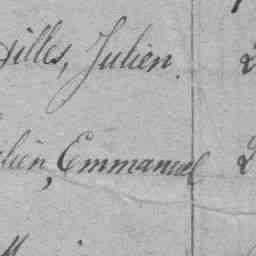 Gilles, Julien. 2
Julien, Emmanuel 2